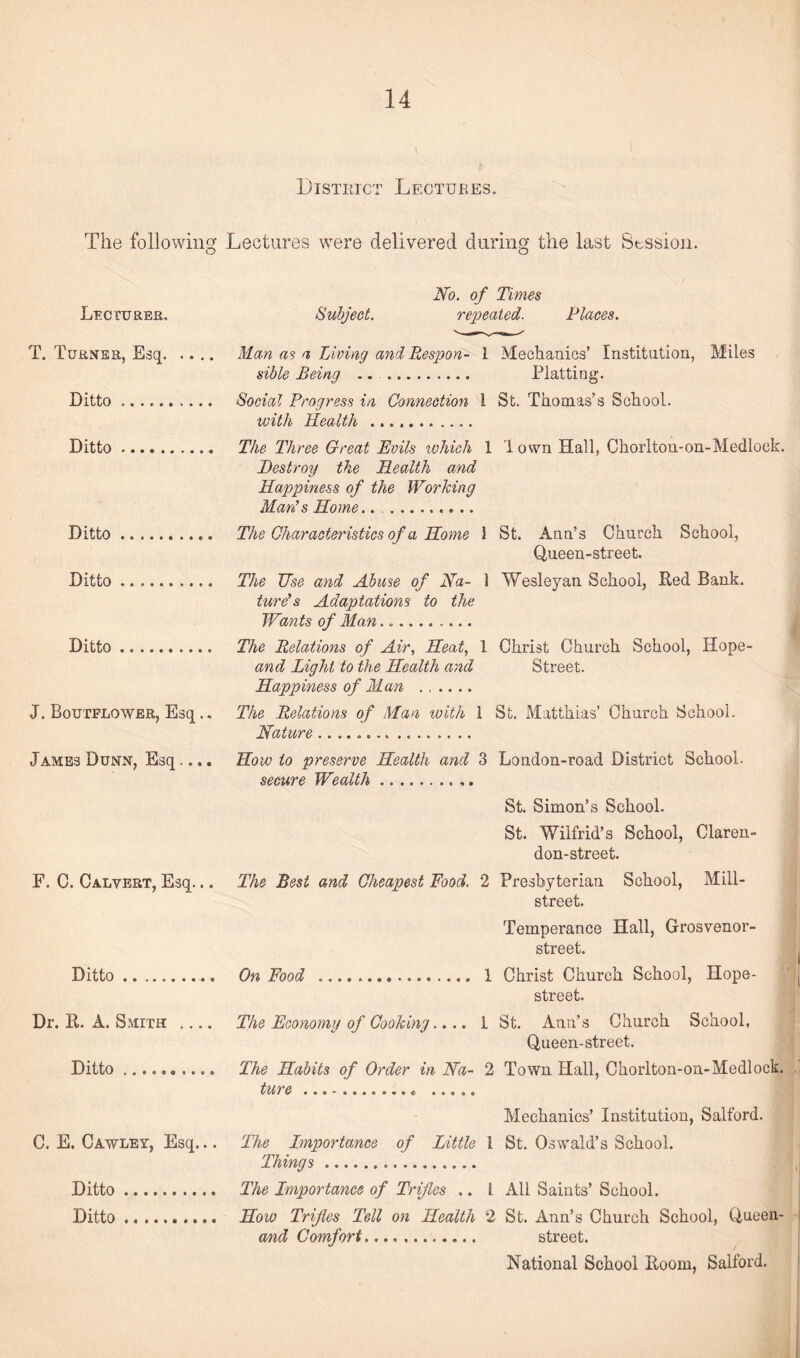 14
DISTRICT LECTURES.
The following Lectures were delivered during the last Session.
No. of Times
LECTURER. Subject. repeated. Places.
T. TURNER, Esq. .... Man as a Living and Respon- 1 Mechanics' Institution, Miles
sible Being .. .......... Platting.
Ditto .......... Social Progress in Connection 1 St. Thomas's School.
with Health ...........
Ditto ........... The Three Great Evils which 1 Town Hall, Chorlton-on-Medlock.
Destroy the Health and
Happiness of the Working
Man's Home.. ..........
Ditto .......... The Characteristics of a Home 1 St. Ann's Church School,
Queen-street.
Ditto .......... The Use and Abuse of Na- 1 Wesleyan School, Red Bank.
ture's Adaptations to the
Wants of Man..........
Ditto .......... The Relations of Air, Heat, 1 Christ Church School, Hope-
and Light to the Health and Street.
Happiness of Man ......
J. BOUTFLOWER, Esq .. The Relations of Man with 1 St. Matthias' Church School.
Nature ................
JAMES DUNN, Esq .... How to preserve Health and 3 London-road District School.
secure Wealth ...........
St. Simon's School.
St. Wilfrid's School, Claren-
don-street.
F. C. CALVERT, Esq... The Best and Cheapest Food. 2 Presbyterian School, Mill-
street.
Temperance Hall, Grosvenor-
street.
Ditto ........... On Food ................ 1 Christ Church School, Hope-
street.
Dr. R. A. SMITH .... The Economy of Cooking.... 1 St. Ann's Church School,
Queen-street.
Ditto .......... The Habits of Order in Na- 2 Town Hall, Chorlton-on-Medlock.
ture ............ .....
Mechanics' Institution, Salford.
C. E. CAWLEY, Esq... The Importance of Little 1 St. Oswald's School.
Things ................
Ditto .......... The Importance of Trifles .. 1 All Saints' School.
Ditto ........... How Trifles Tell on Health 2 St. Ann's Church School, Queen-
and Comfort............ street.
National School Room, Salford.